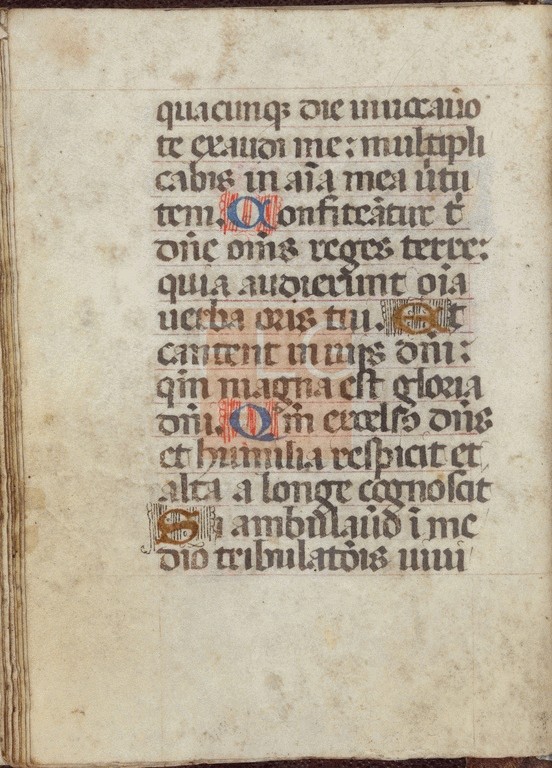 quacunqꝫ die inuocauo
te exaudi me: multipli
cabis in aīa mea ūtu
tem. Confiteātur t̄
dn̄e om̄s reges terre:
quia audierunt oīa
uerba oris tui. Et
cantent in uijs dn̄i:
qm̄ magna est gloria
dn̄i. Qm̄ excelsꝰ dn̄s
et humilia respicit et
alta a longe cognoscit
Si ambulau̅o ī me
dio tribulatōis uiui